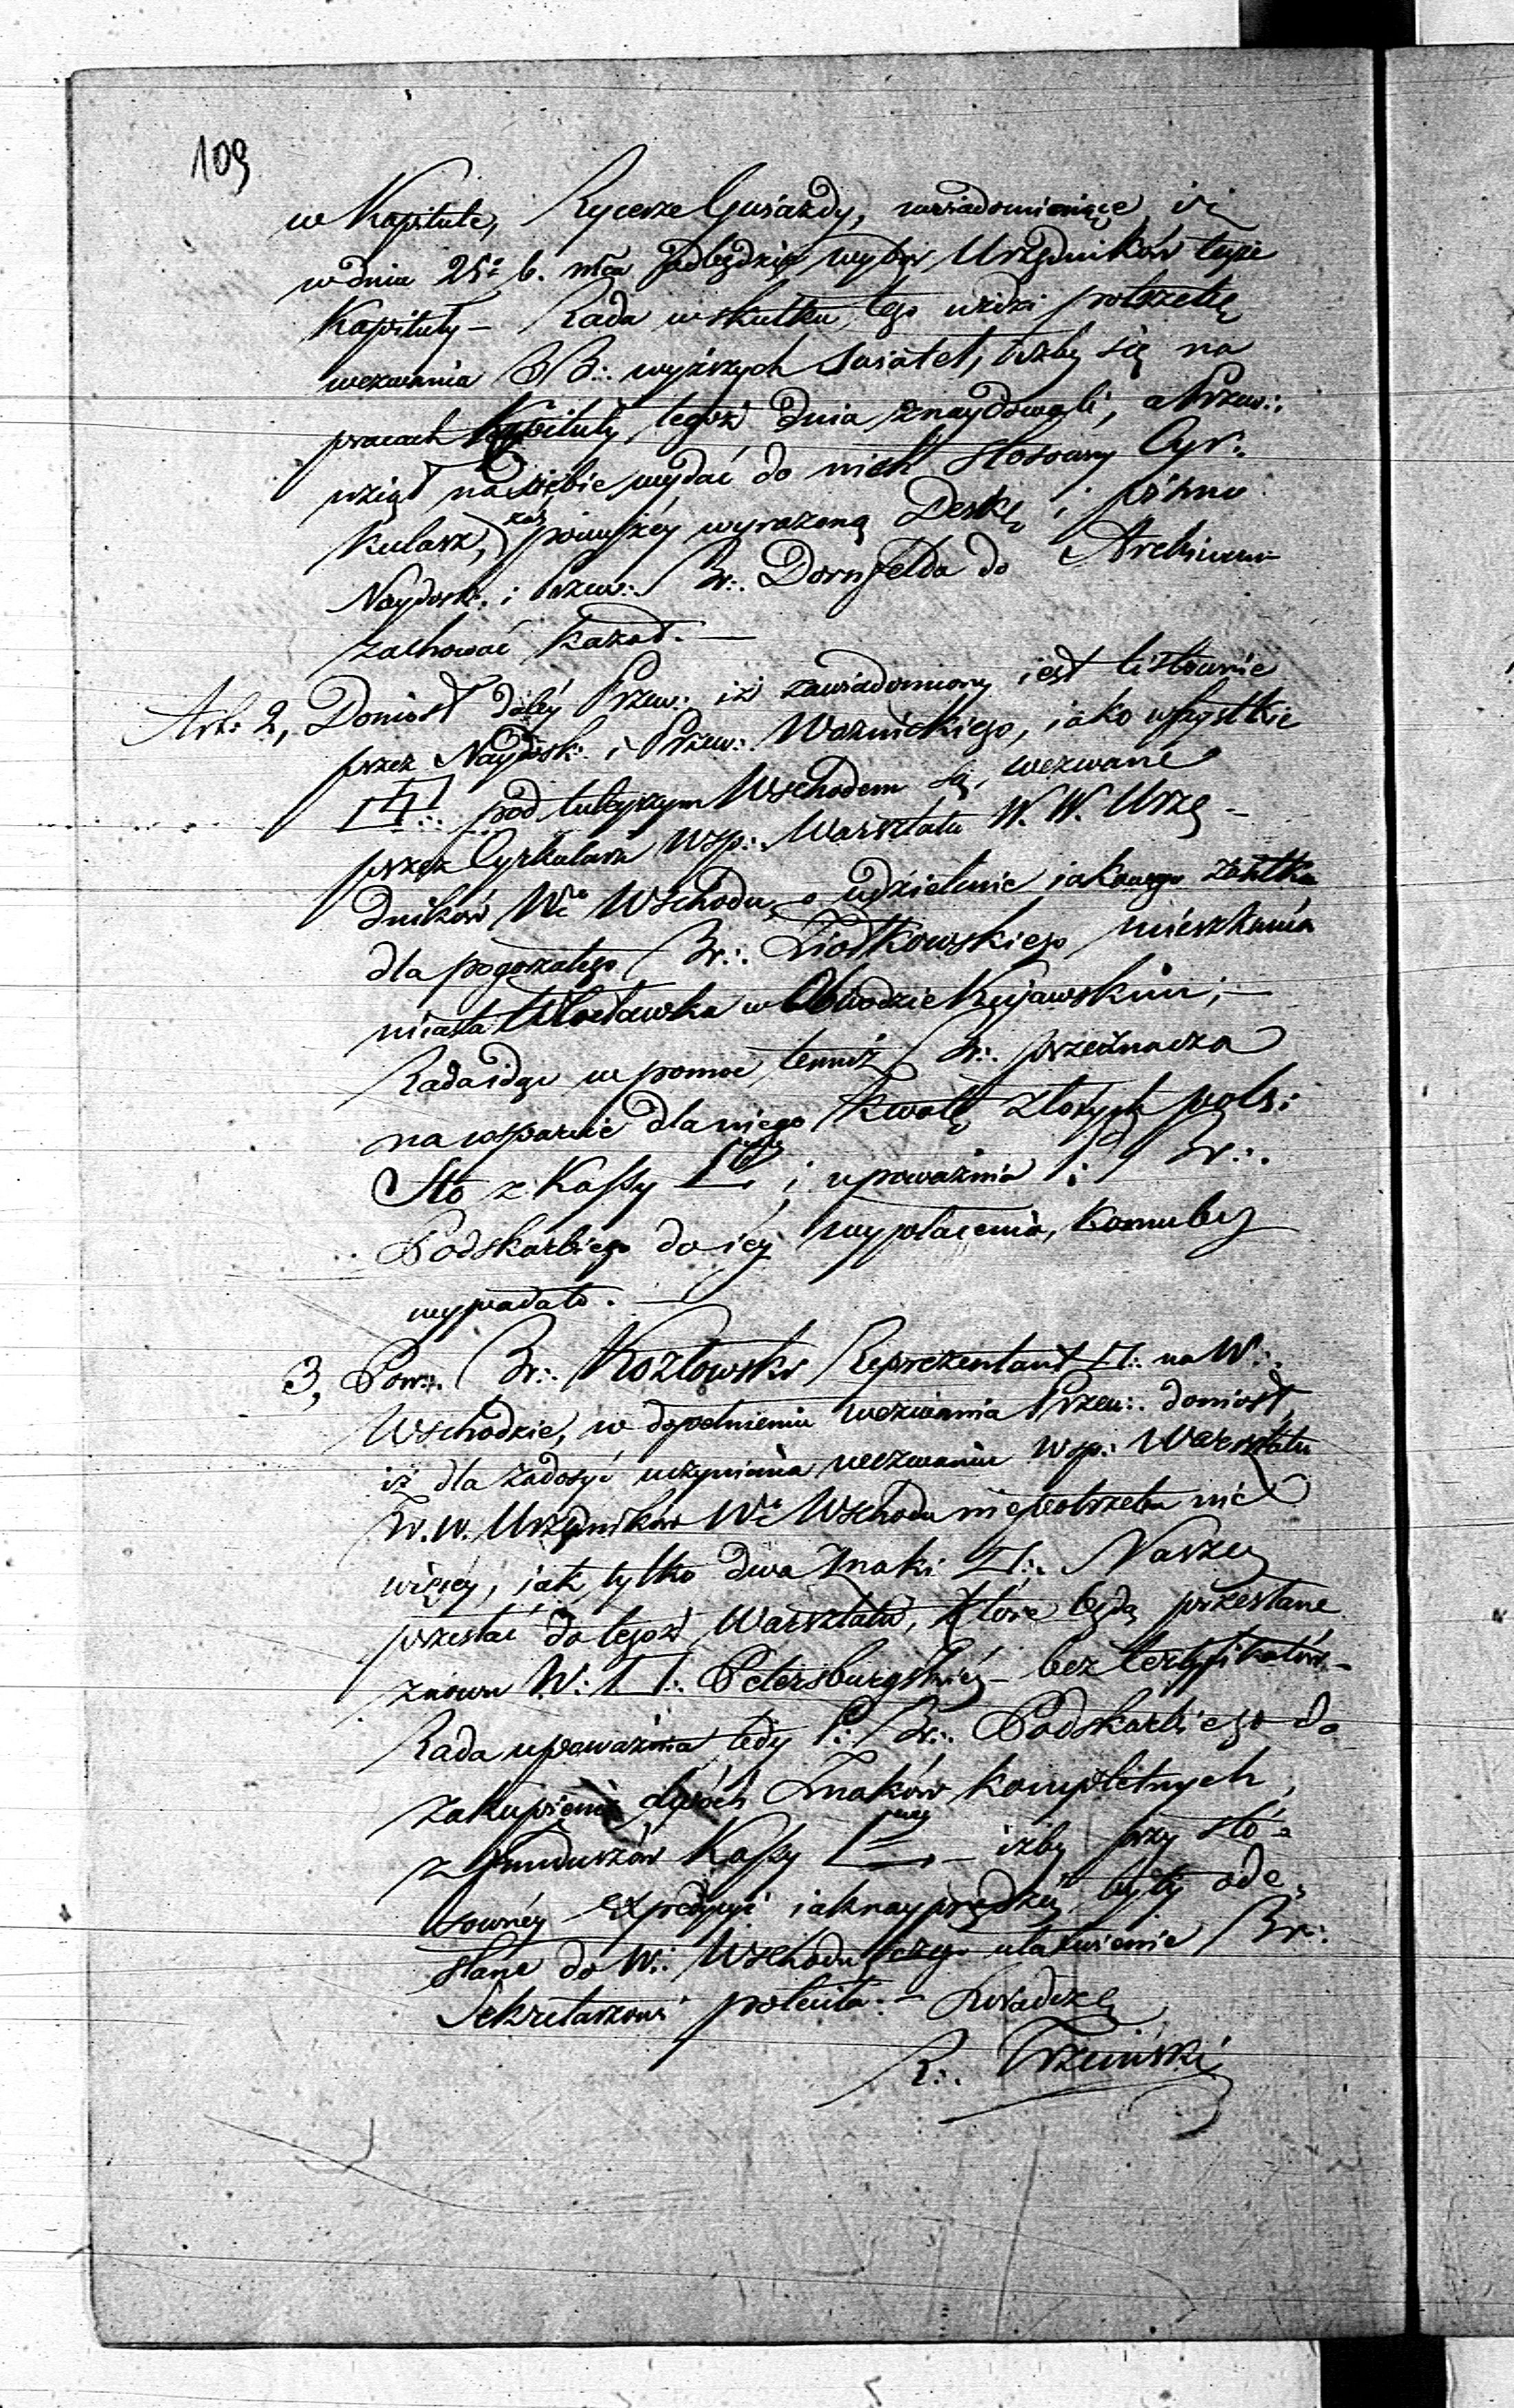 109
w Kapitule, Rycerze Gwiazdy, uwiadomiające, iż
w dniu 25º b. mca odbędzie wybór Urzędników teyże
Kapituły — Rada w skutku tego widzi potrzebę
wezwania BB∴ wyższych Swiateł, iżby się na
pracach Kapituły tegoż dnia znaydowali, a Przew∴
wziął na siebie wydać do nich stosowny Cyr:
kularz, zaś powyżéy wyrażoną Deskę i pismo
Naydosk: i Przew: Br∴ Dornfelda do Archiwum
zachować kazał. —
Art: 2, Doniosł daléy Przew: iż zawiadomiony iest listownie
przez Naydosk: i Przew: Woznickiego, iako wszystkie
pod tuteyszym Wschodem są wezwane
przez Cyrkularz Wsp: Warsztatu W. W. Urzę-
dników Wgo Wschodu, o udzielenie iakowego zasiłku
dla pogorzałego Br∴ Ziołkowskiego mieszkańca
miasta Włocławka w Obwodzie Kujawskim; —
Rada idąc w pomoc temuż Br∴ przeznacza
na wsparcie dla niego kwotę złotych pols:
Sto z Kassy i upoważnia P: Br∴
Podskarbiego do iéy wypłacenia, komuby
wypadało. —
3, Pow∴ Br∴ Kozłowski Reprezentant na W∴
Wschodzie, w dopełnieniu wezwania Przew: doniosł,
iż dla zadosyć uczynienia wezwaniu Wsp: Warsztatu
W. W. Urzędników Wgo Wschodu niepotrzeba nic
więcéy, iak tylko dwa Znaki Naszey
przesłać do tegoż Warsztatu, które będą przesłane
znowu W: Petersburgskiéy — bez Certyfikatów —
Rada upoważnia tedy P: Br∴ Podskarbiego do
zakupienia dwóch Znaków kompletnych,
z funduszów Kassy — iżby przy sto-
sownéy expedycyi iaknayprędzéy były ode-
słane do W: Wschodu, czego ułatwienie Br∴
Sekretarzowi poleciła. — Swiadczę
R∴ Trzciński